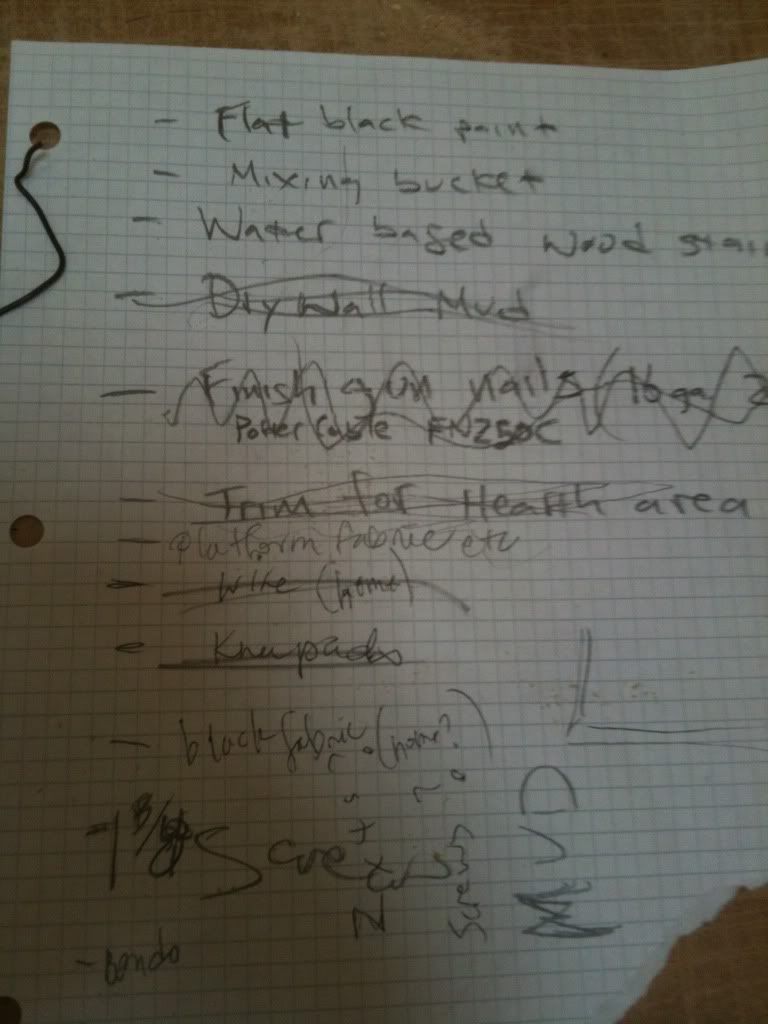 - Flat black paint
- Mixing bucket
- Water based wood stai
- Dry Wall Mud
- Finish gun nails (16 ga
Porter Cable FN250C
- Trim for Hearth area
- platform fabric etc
- Wire (home)
- Kneepads
- black fabric (home?)
Screws
MUD
- Bondo